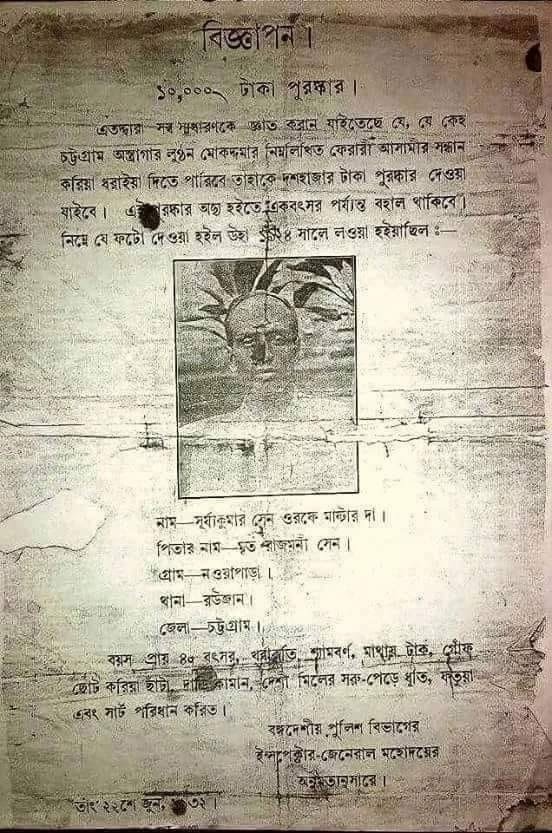 বিজ্ঞাপন।
১০,০০০৲ টাকা পুরস্কার।
এতদ্দ্বারা সর্ব্ব সাধারণকে জ্ঞাত করান যাইতেছে যে, যে কেহ
চট্টগ্রাম অস্ত্রাগার লুণ্ঠন মোকদ্দমার নিম্নলিখিত ফেরারী আসামীর সন্ধান
করিয়া ধরাইয়া দিতে পারিবে তাহাকে দশহাজার টাকা পুরস্কার দেওয়া
যাইবে। এই পুরস্কার অদ্য হইতে একবৎসর পর্য্যন্ত বহাল থাকিবে।
নিম্নে যে ফটো দেওয়া হইল উহা ১৯২৪ সালে লওয়া হইয়াছিল ঃ—
নাম—সূর্য্যকুমার সেন ওরফে মাষ্টার দা।
পিতার নাম—মৃত রাজমনী সেন।
গ্রাম—নওয়াপাড়া।
থানা—রউজান।
জেলা—চট্টগ্রাম।
বয়স প্রায় ৪০ বৎসর, খর্ব্বাকৃতি, শ্যামবর্ণ, মাথায় টাক, গোঁফ
ছোট করিয়া ছাঁটা, দাড়ি কামান, দেশী মিলের সরু-পেড়ে ধুতি, ফতুয়া
এবং সার্ট পরিধান করিত।
বঙ্গদেশীয় পুলিশ বিভাগের
ইন্সপেক্টার-জেনেরাল মহোদয়ের
অনুমত্যনুসারে।
তাং ২২শে জুন, ১৯৩২।